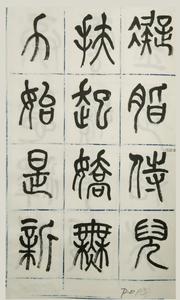 凝脂侍兒
扶起嬌無
力始是新